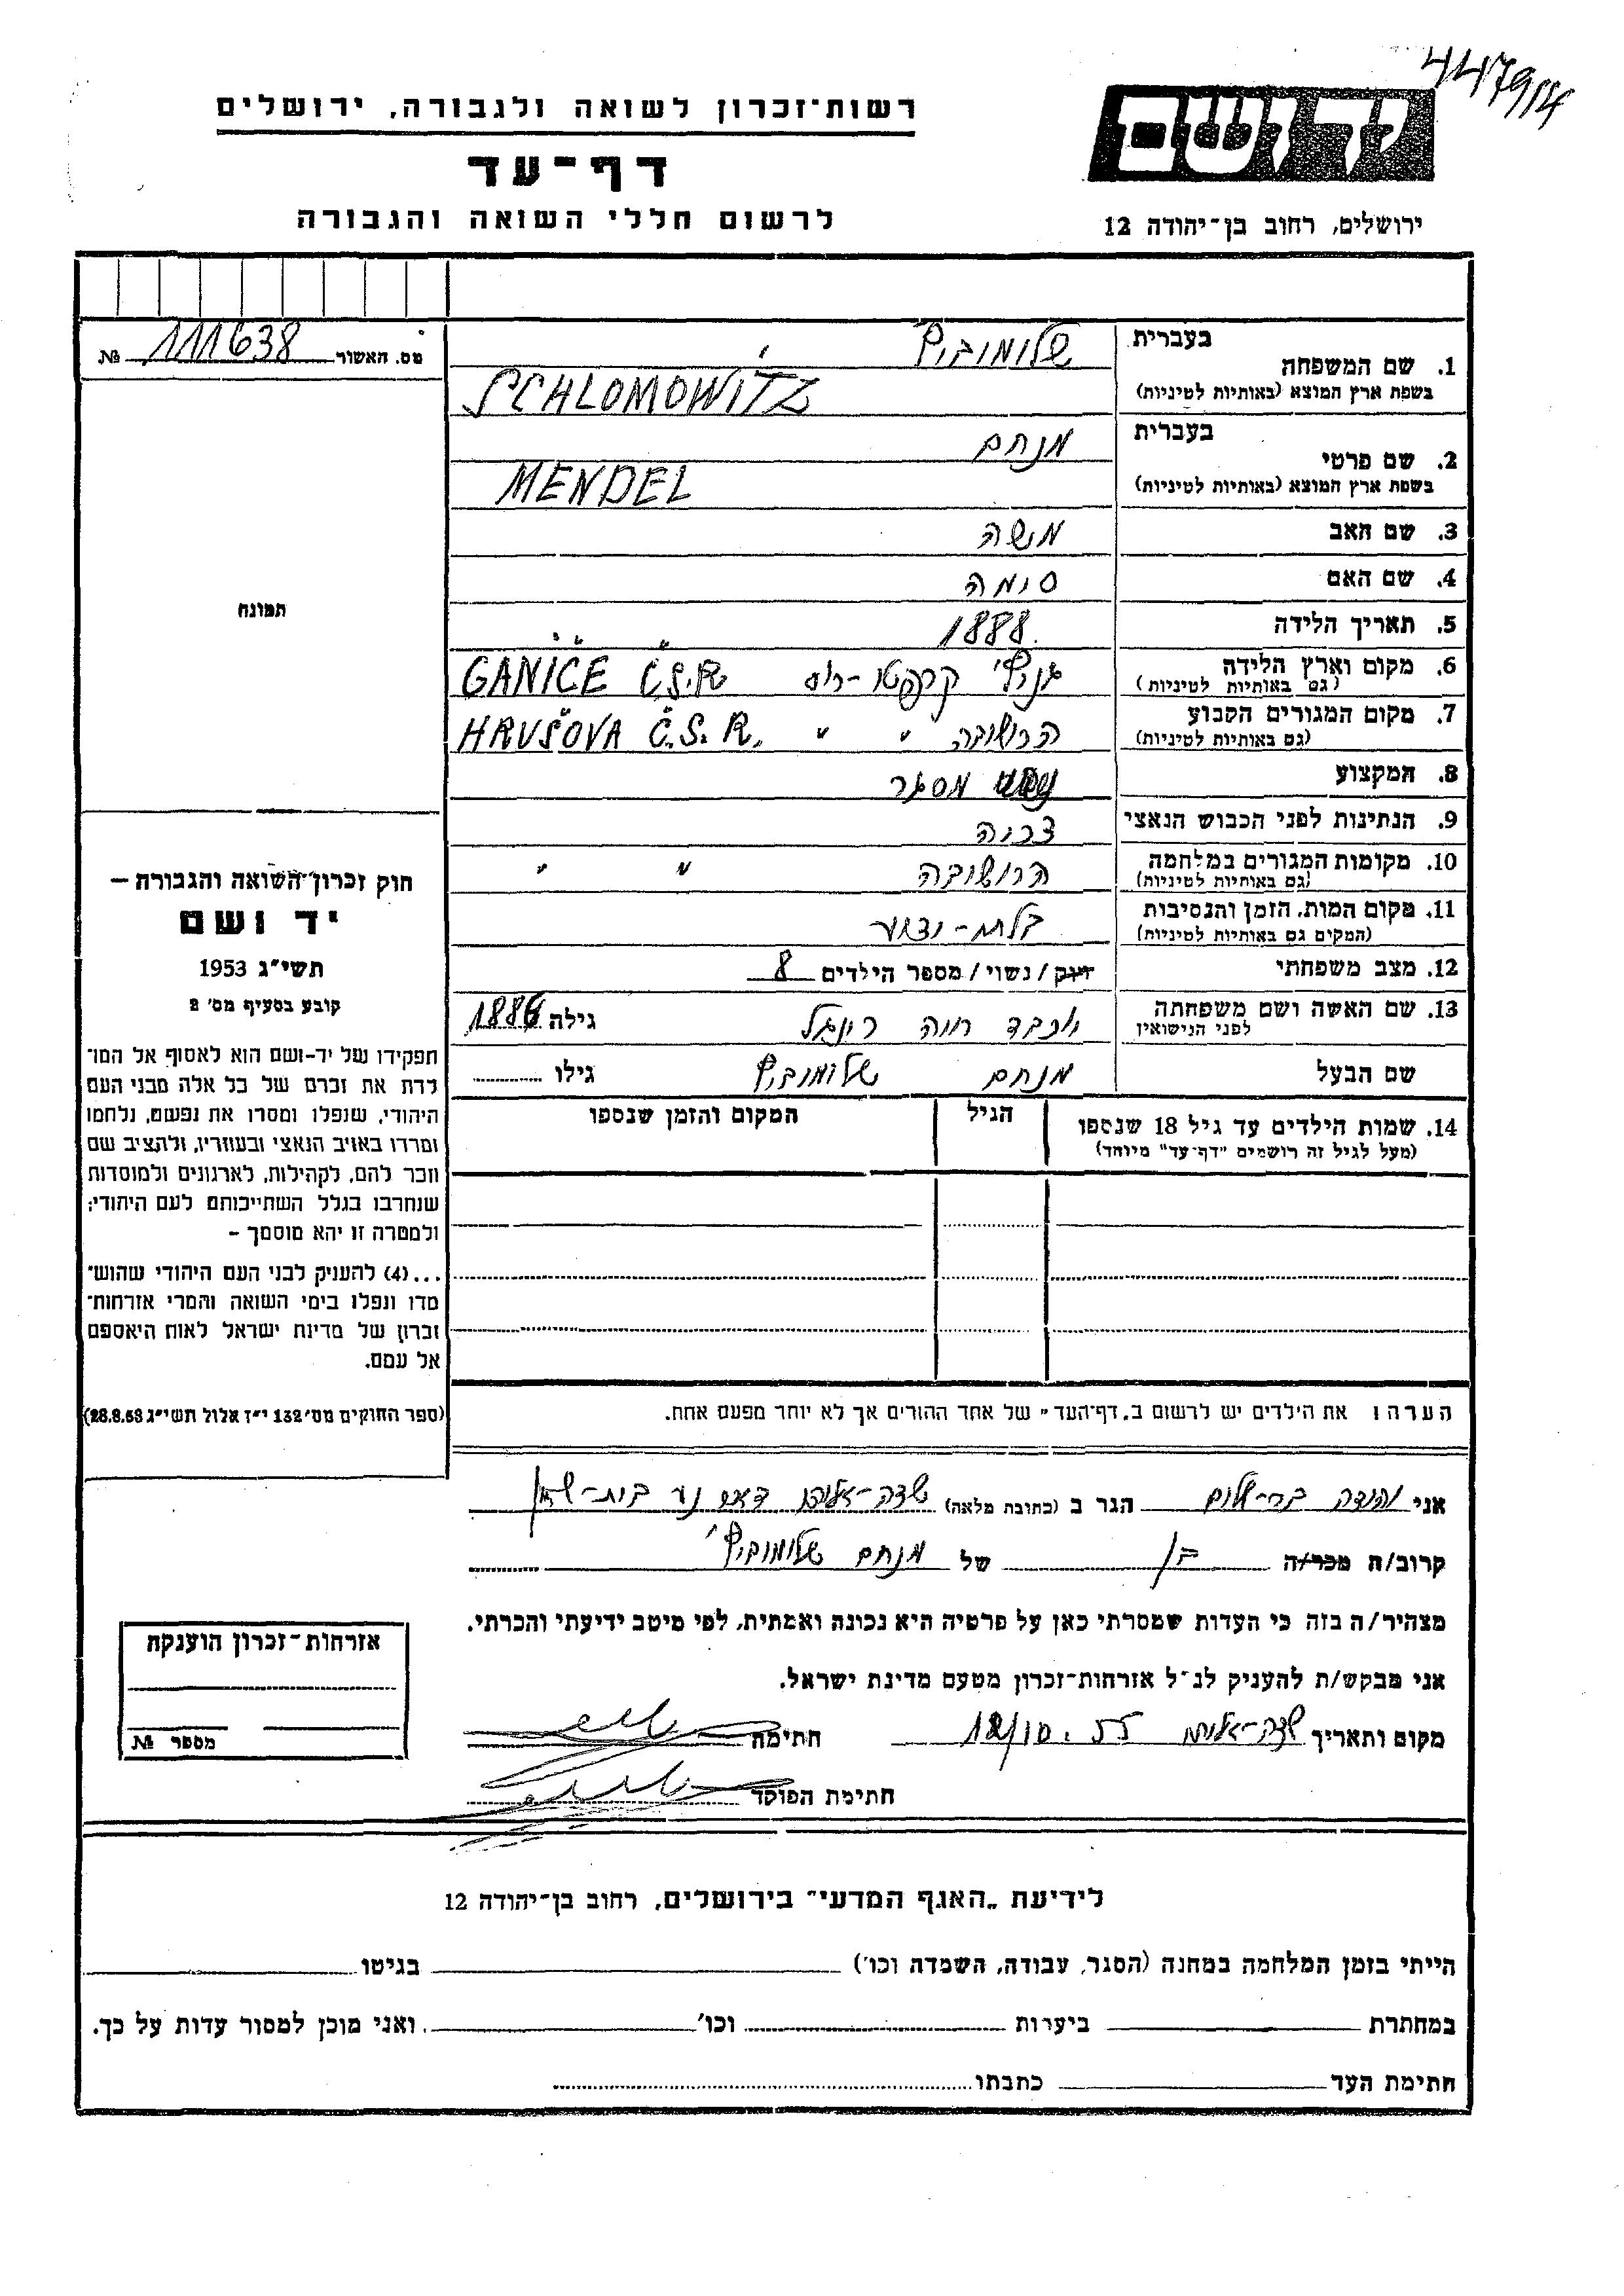 4479/4
יד ושם
רשות־זכרון לשואה ולגבורה, ירושלים
דף־עד
לרשום חללי השואה והגבורה
ירושלים, רחוב בן־יהודה 12
מס. האשור 111638 №
1. שם המשפחה בעברית שלומוביץ
בשפת ארץ המוצא (באותיות לטיניות) SCHLOMOWITZ
2. שם פרטי בעברית מנחם
בשפת ארץ המוצא (באותיות לטיניות) MENDEL
3. שם האב משה
4. שם האם סימה
5. תאריך הלידה 1888
6. מקום וארץ הלידה (גם באותיות לטיניות) גניץ' קרפטו-רוס GANIČE Č.S.R
7. מקום המגורים הקבוע (גם באותיות לטיניות) הרושובה " " HRUŠOVA Č.S.R.
8. המקצוע מסגר
9. הנתינות לפני הכבוש הנאצי צ'כיה
10. מקומות המגורים במלחמה (גם באותיות לטיניות) הרושובה " "
11. מקום המות, הזמן והנסיבות (המקום גם באותיות לטיניות) בלתי-ידוע
12. מצב משפחתי רווק/נשוי/מספר הילדים 8
13. שם האשה ושם משפחתה לפני הנישואין יוכבד חוה גילה 1886
שם הבעל מנחם שלומוביץ גילו
14. שמות הילדים עד גיל 18 שנספו (מעל לגיל זה רושמים "דף־עד" מיוחד)
הגיל
המקום והזמן שנספו
הערה: את הילדים יש לרשום ב„דף־העד" של אחד ההורים אך לא יותר מפעם אחת.
תמונה
חוק זכרון־השואה והגבורה —
יד ושם
תשי"ג 1953
קובע בסעיף מס' 2
תפקידו של יד-ושם הוא לאסוף אל המו־
לדת את זכרם של כל אלה מבני העם
היהודי, שנפלו ומסרו את נפשם, נלחמו
ומרדו באויב הנאצי ובעוזריו, ולהציב שם
וזכר להם, לקהילות, לארגונים ולמוסדות
שנחרבו בגלל השתייכותם לעם היהודי;
ולמטרה זו יהא מוסמך –
...(4) להעניק לבני העם היהודי שהוש־
מדו ונפלו בימי השואה והמרי אזרחות־
זכרון של מדינת ישראל לאות היאספם
אל עמם.
(ספר החוקים מס' 132 י"ז אלול תשי"ג 28.8.53)
אני יהודה בר-שלום הגר ב (כתובת מלאה) שדה-אליהו דאר נע בית-שאן
קרוב/ה מכר/ה בן של מנחם שלומוביץ'
מצהיר/ה בזה כי העדות שמסרתי כאן על פרטיה היא נכונה ואמתית, לפי מיטב ידיעתי והכרתי.
אני מבקש/ת להעניק לנ"ל אזרחות־זכרון מטעם מדינת ישראל.
מקום ותאריך שדה-אליהו 12/10.55 חתימה
חתימת הפוקד
אזרחות־זכרון הוענקה
מספר №
לידיעת „האגף המדעי" בירושלים, רחוב בן־יהודה 12
הייתי בזמן המלחמה במחנה (הסגר, עבודה, השמדה וכו') בגיטו
במחתרת ביערות וכו' ואני מוכן למסור עדות על כך.
חתימת העד כתבתו